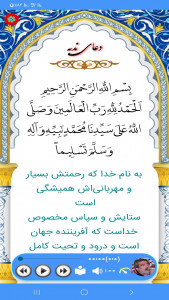 دعای ندبه
بِسْمِ اللَّهِ الرَّحْمنِ الرَّحِيمِ
الْحَمْدُ لِلَّهِ رَبِّ الْعَالَمِينَ وَصَلَّى
اللَّهُ عَلَى سَيِّدِنَا مُحَمَّدٍ نَبِيِّهِ وَآلِهِ
وَسَلَّمَ تَسْلِيماً
به نام خدا که رحمتش بسیار
و مهربانی‌اش همیشگی
است
ستایش و سپاس مخصوص
خداست که آفریننده جهان
است و درود و تحیت کامل